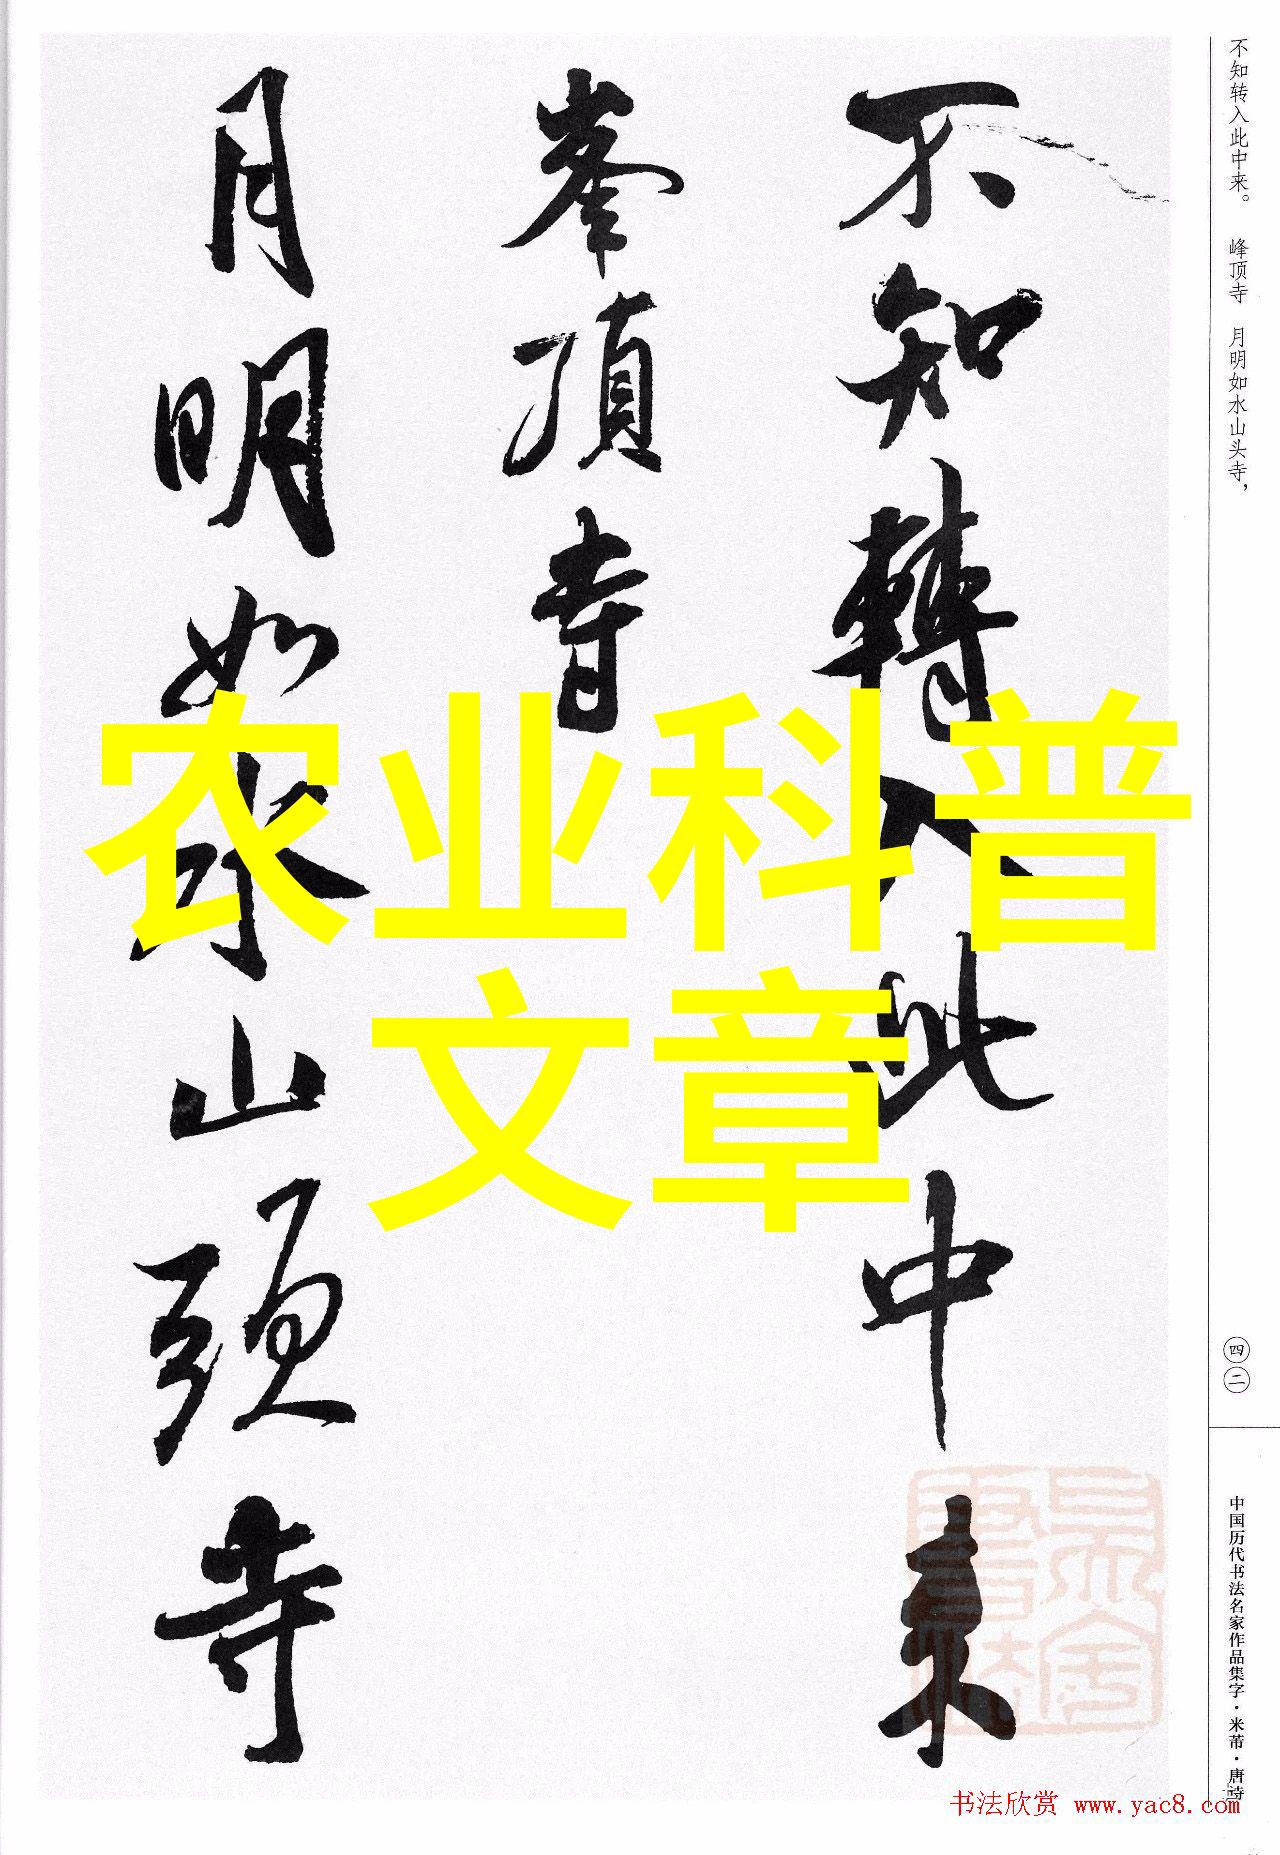 不知轉入此中来
峯頂寺
月明如水山頭寺
不知转入此中来。 峰顶寺 月明如水山头寺，
四二
中国历代书法名家作品集字·米芾·唐诗
农业科普
文章
书法欣赏 www.yac8.com